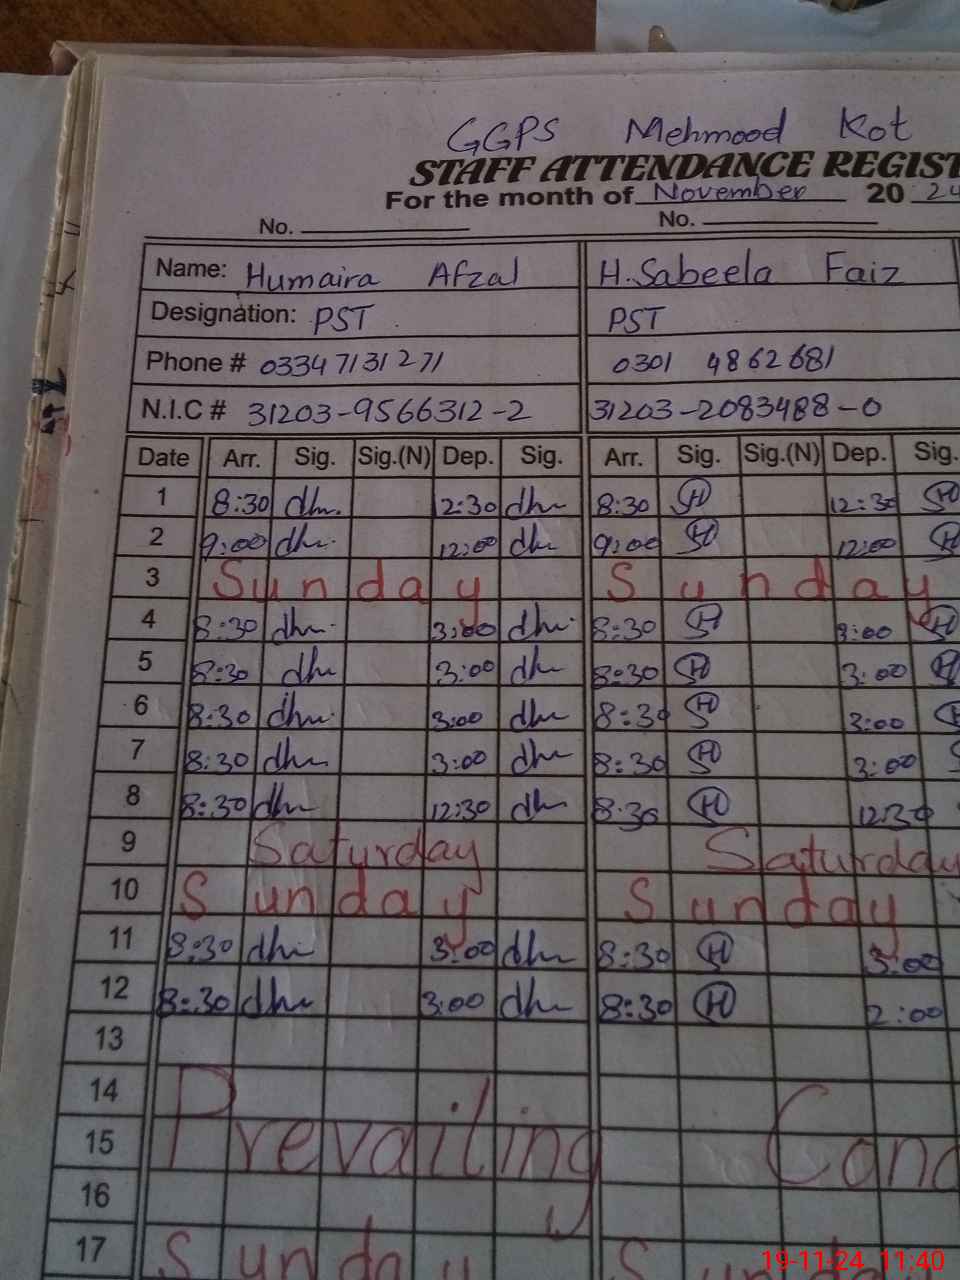 GGPS Mehmood Kot
STAFF ATTENDANCE REGIST
For the month of November 20 24
No. No.
Name: Humaira Afzal H.Sabeela Faiz
Designation: PST PST
Phone # 0334 7131271 0301 4862681
N.I.C # 31203-9566312-2 31203-2083488-0
Date Arr. Sig. Sig.(N) Dep. Sig. Arr. Sig. Sig.(N) Dep. Sig.
1 8:30 12:30 8:30 12:30
2 9:00 12:00 9:00 12:00
3 Sunday Sunday
4 8:30 3:00 8:30 3:00
5 8:30 3:00 8:30 3:00
6 8:30 3:00 8:30 3:00
7 8:30 3:00 8:30 3:00
8 8:30 12:30 8:30 12:30
9 Saturday Saturday
10 Sunday Sunday
11 8:30 3:00 8:30 3:00
12 8:30 3:00 8:30 2:00
13
14
15 Prevailing Cond
16
17 Sunday Sunda
19-11-24 11:40